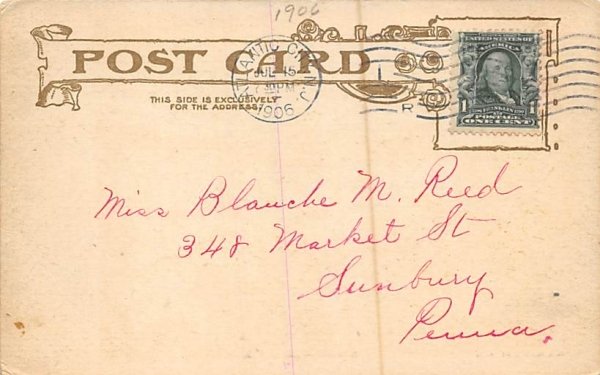 1906
POST CARD
THIS SIDE IS EXCLUSIVELY
FOR THE ADDRESS.
ATLANTIC CITY, N.J.
JUL 15
PM
1906
R
UNITED STATES OF
AMERICA
1 FRANKLIN 1
POSTAGE
ONE CENT
Miss Blanche M. Reed
348 Market St
Sunbury
Penna.